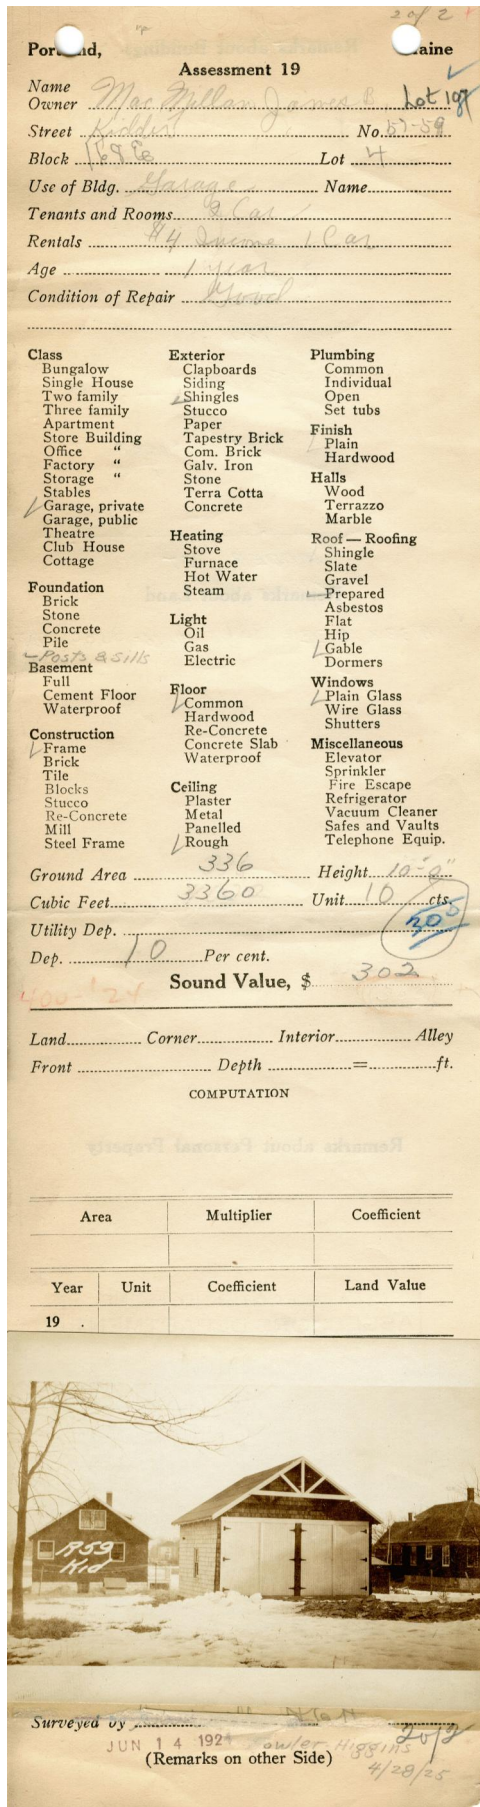 2 of 2
Portland, Maine
Assessment 19
Name
Owner MacMillan James B Lot 107
Street Kidder No. 57-59
Block 168E Lot 4
Use of Bldg. Garage Name
Tenants and Rooms 2 Car
Rentals $4 Income 1 Car
Age 1 year
Condition of Repair Good
Class
Bungalow
Single House
Two family
Three family
Apartment
Store Building
Office "
Factory "
Storage "
Stables
Garage, private
Garage, public
Theatre
Club House
Cottage
Foundation
Brick
Stone
Concrete
Pile
Posts & Sills
Basement
Full
Cement Floor
Waterproof
Construction
Frame
Brick
Tile
Blocks
Stucco
Re-Concrete
Mill
Steel Frame
Exterior
Clapboards
Siding
Shingles
Stucco
Paper
Tapestry Brick
Com. Brick
Galv. Iron
Stone
Terra Cotta
Concrete
Heating
Stove
Furnace
Hot Water
Steam
Light
Oil
Gas
Electric
Floor
Common
Hardwood
Re-Concrete
Concrete Slab
Waterproof
Ceiling
Plaster
Metal
Panelled
Rough
Plumbing
Common
Individual
Open
Set tubs
Finish
Plain
Hardwood
Halls
Wood
Terrazzo
Marble
Roof — Roofing
Shingle
Slate
Gravel
Prepared
Asbestos
Flat
Hip
Gable
Dormers
Windows
Plain Glass
Wire Glass
Shutters
Miscellaneous
Elevator
Sprinkler
Fire Escape
Refrigerator
Vacuum Cleaner
Safes and Vaults
Telephone Equip.
Ground Area 336 Height 10'-0"
Cubic Feet 3360 Unit 10 cts.
Utility Dep. 300
Dep. 10 Per cent.
Sound Value, $ 302
400-'24
Land Corner Interior Alley
Front Depth = ft.
COMPUTATION
Area Multiplier Coefficient
Year Unit Coefficient Land Value
19 .
R59
Kid
Surveyed by 2 of 2
JUN 14 192 Fowler Higgins
(Remarks on other Side) 4/28/25